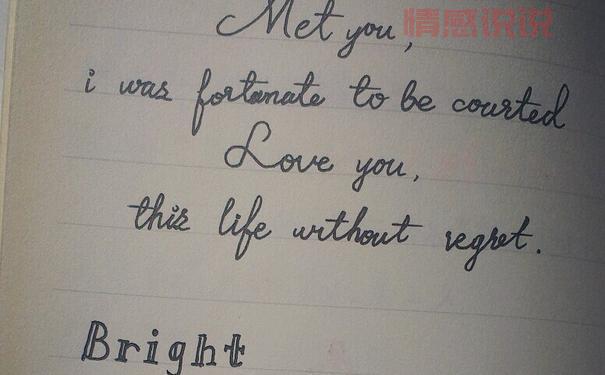 Met you,
情感说说
i was fortunate to be courted
Love you,
this life without regret.
Bright